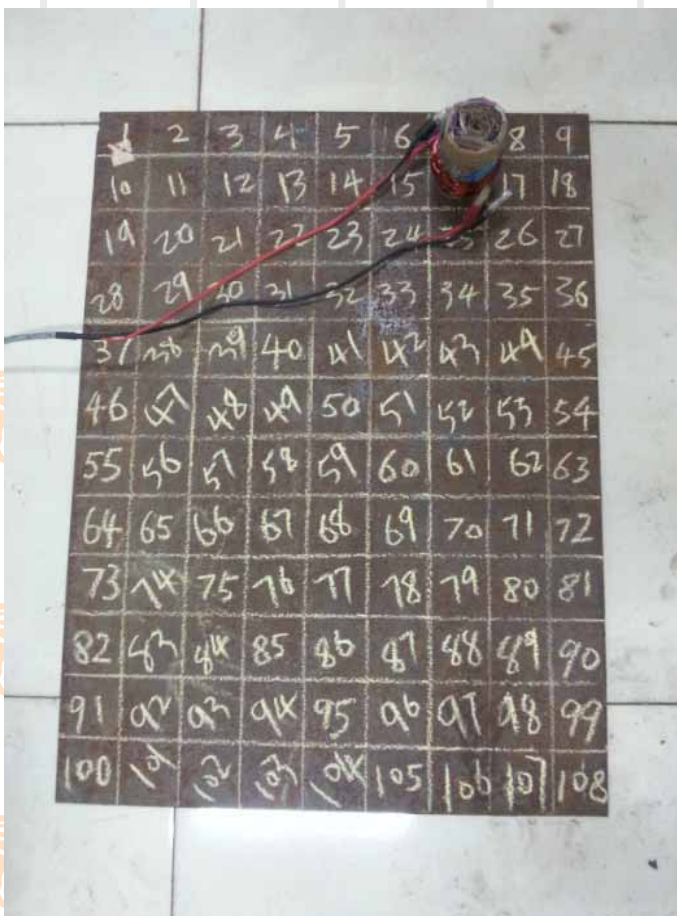 1 2 3 4 5 6 8 9
10 11 12 13 14 15 17 18
19 20 21 22 23 24 25 26 27
28 29 30 31 32 33 34 35 36
37 38 39 40 41 42 43 44 45
46 47 48 49 50 51 52 53 54
55 56 57 58 59 60 61 62 63
64 65 66 67 68 69 70 71 72
73 74 75 76 77 78 79 80 81
82 83 84 85 86 87 88 89 90
91 92 93 94 95 96 97 98 99
100 101 102 103 104 105 106 107 108